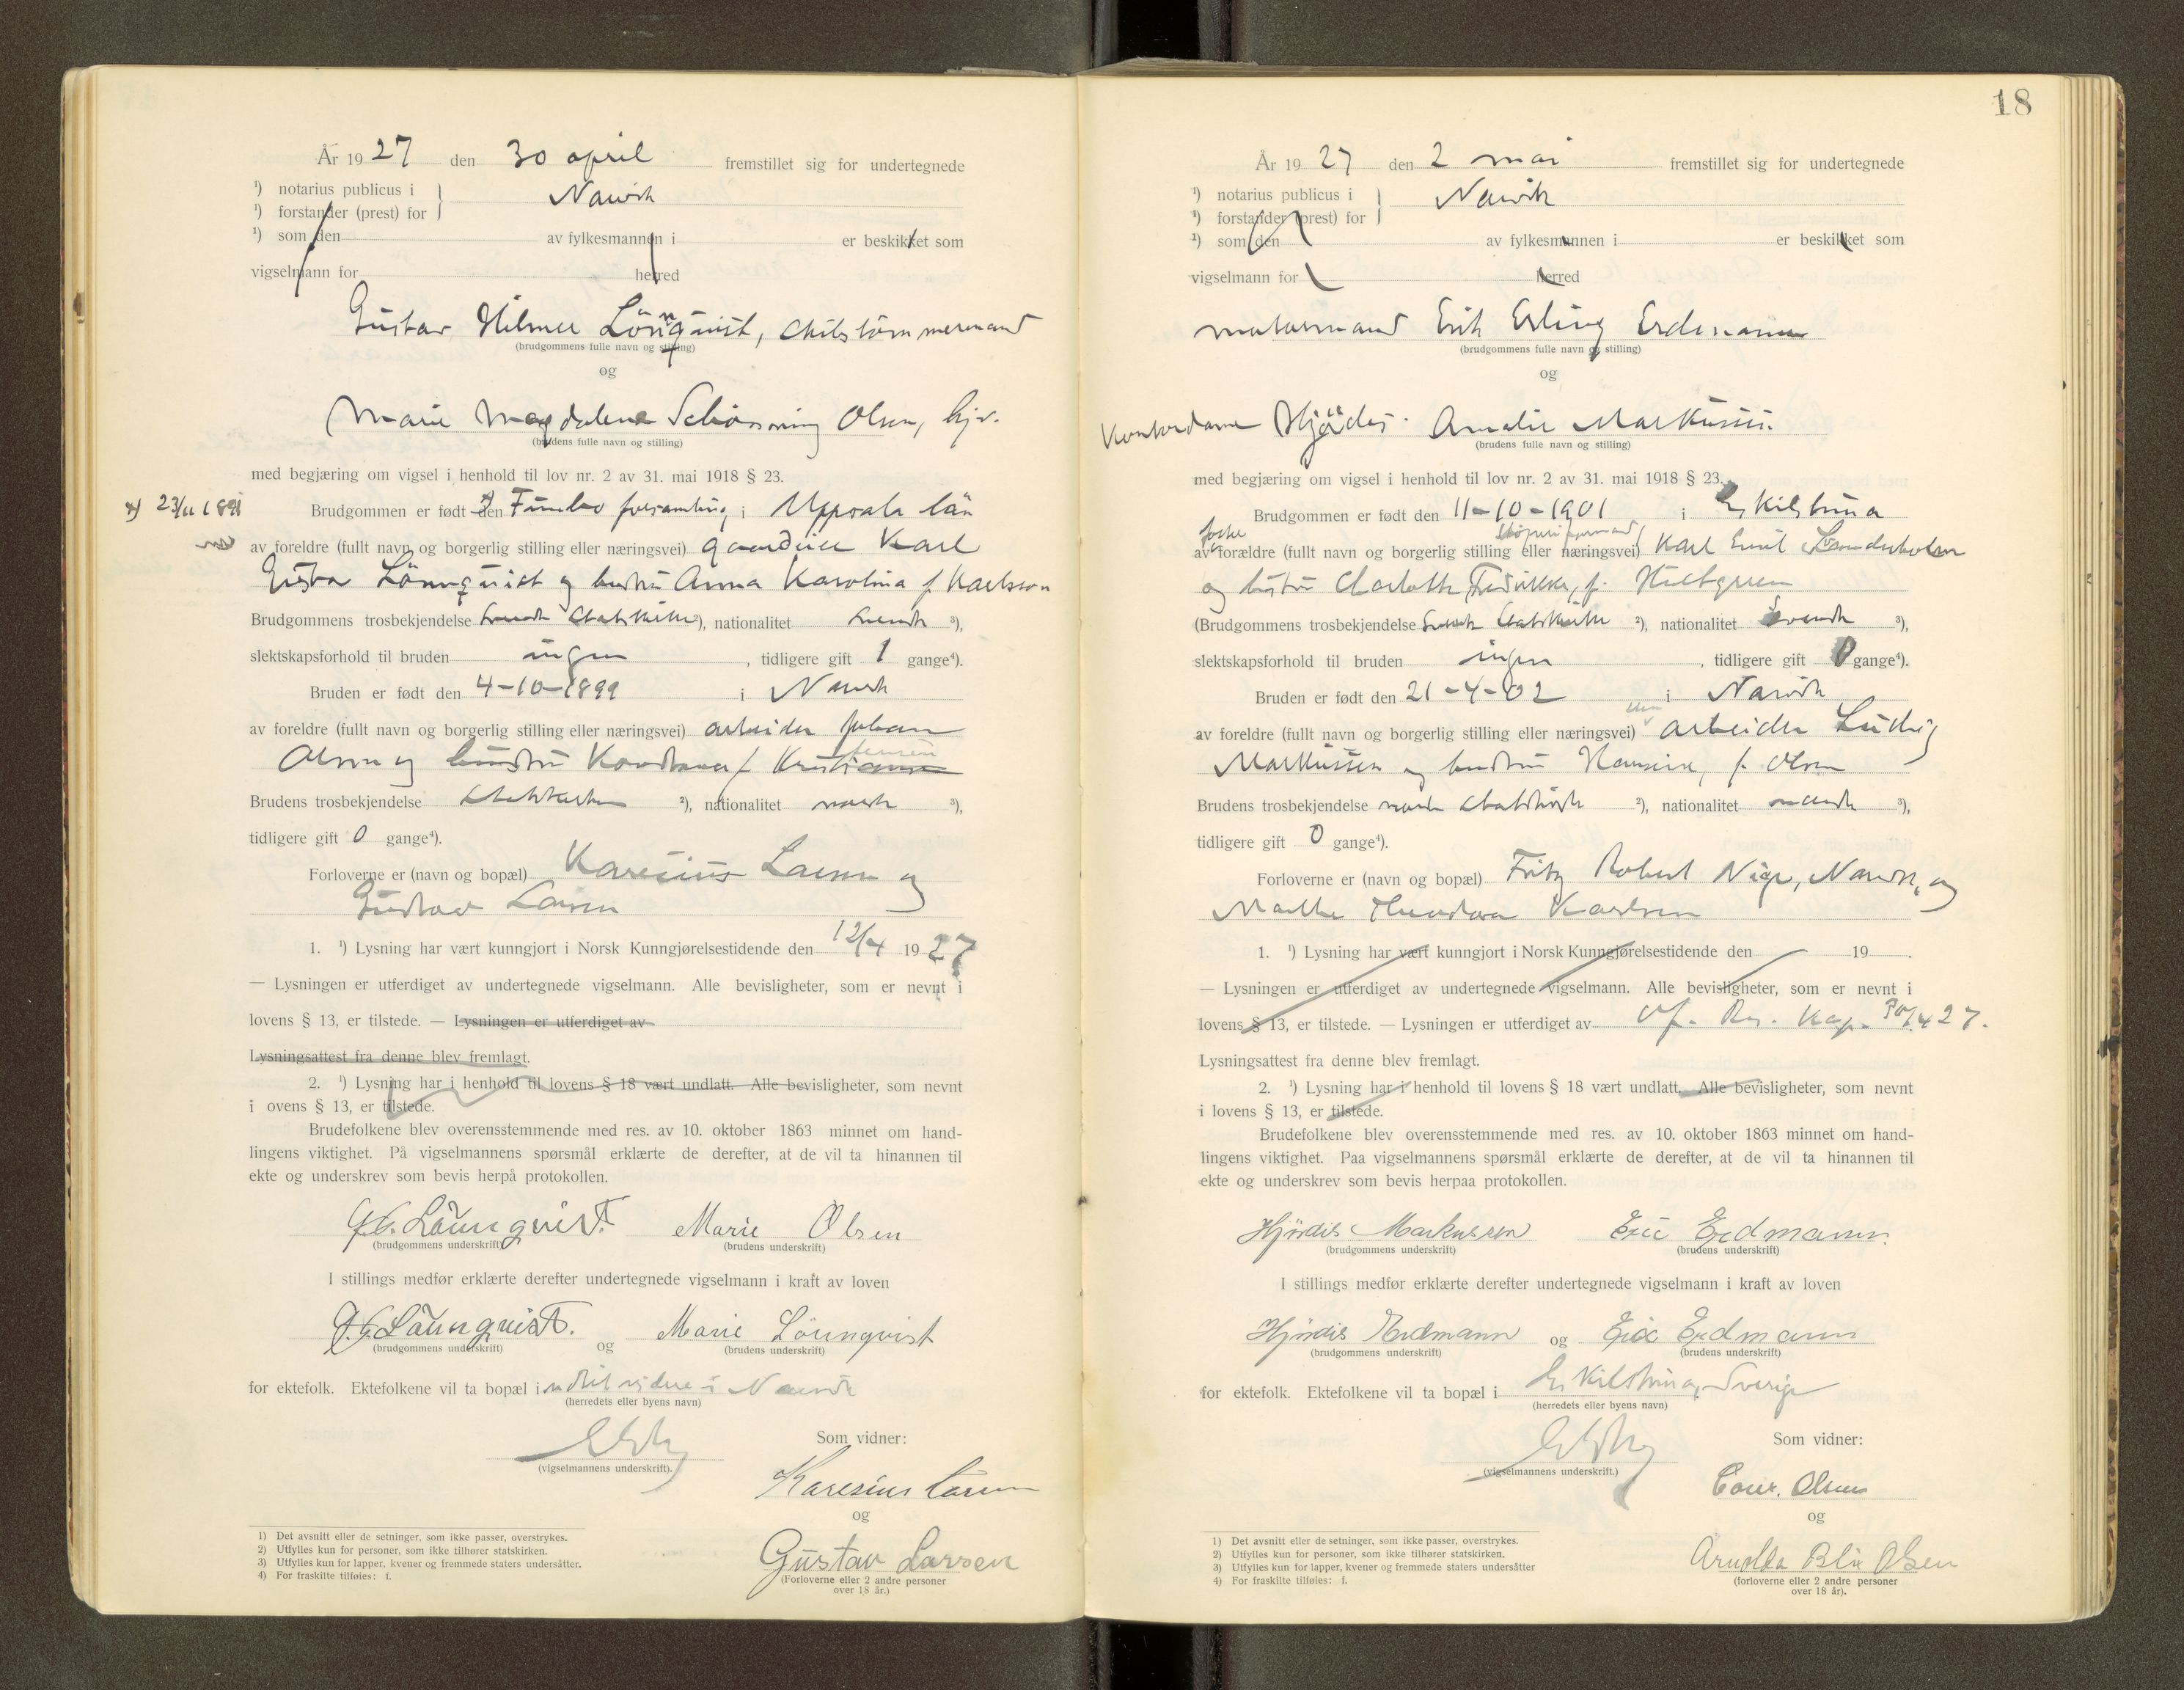 År 1927 den 30 april fremstillet sig for undertegnede
¹) notarius publicus i
¹) forstander (prest) for
Narvik
¹) som den av fylkesmannen i er beskikket som
vigselmann for herred
Gustav Hilmer Lönnquist,
(brudgommens fulle navn og stilling)
og
Marie Magdalena Schønning Olsen, hjv.
(brudens fulle navn og stilling)
med begjæring om vigsel i henhold til lov nr. 2 av 31. mai 1918 § 23.
x) 23/11 1891
Brudgommen er født den x) Funbo forsamling, i Uppsala län
av foreldre (fullt navn og borgerlig stilling eller næringsvei) gaardeier Karl
Gusta Lönnquist og hustru Anna Karolina f. Karlsson
Brudgommens trosbekjendelse svensk statskirke ²), nationalitet svensk ³),
slektskapsforhold til bruden ingen, tidligere gift 1 gange⁴).
Bruden er født den 4-10-1899 i Narvik
av foreldre (fullt navn og borgerlig stilling eller næringsvei) arbeider Johan
Olsen og hustru f. Jensen
Brudens trosbekjendelse statskirken ²), nationalitet norsk ³),
tidligere gift 0 gange⁴).
Forloverne er (navn og bopæl) Karesius Larsen og
Gustav Larsen
1. ¹) Lysning har vært kunngjort i Norsk Kunngjørelsestidende den 12/4 1927
— Lysningen er utferdiget av undertegnede vigselmann. Alle bevisligheter, som er nevnt i
lovens § 13, er tilstede. — Lysningen er utferdiget av
Lysningsattest fra denne blev fremlagt.
2. ¹) Lysning har i henhold til lovens § 18 vært undlatt. Alle bevisligheter, som nevnt
i ovens § 13, er tilstede.
Brudefolkene blev overensstemmende med res. av 10. oktober 1863 minnet om hand-
lingens viktighet. På vigselmannens spørsmål erklærte de derefter, at de vil ta hinannen til
ekte og underskrev som bevis herpå protokollen.
Lönnqvist. Marie Olsen
(brudgommens underskrift) (brudens underskrift)
I stillings medfør erklærte derefter undertegnede vigselmann i kraft av loven
Lönnqvist. og Marie Lönnqvist
(brudgommens underskrift) (brudens underskrift)
for ektefolk. Ektefolkene vil ta bopæl i indtil videre i Narvik
(herredets eller byens navn)
(vigselmannens underskrift).
Som vidner:
Karesius Larsen
og
Gustav Larsen
(Forloverne eller 2 andre personer
over 18 år.)
1) Det avsnitt eller de setninger, som ikke passer, overstrykes.
2) Utfylles kun for personer, som ikke tilhører statskirken.
3) Utfylles kun for lapper, kvener og fremmede staters undersåtter.
4) For fraskilte tilføies: f.
18
År 1927 den 2 mai fremstillet sig for undertegnede
¹) notarius publicus i
¹) forstander (prest) for
Narvik
¹) som den av fylkesmannen i er beskikket som
vigselmann for herred
Erik Erling Erdmann
(brudgommens fulle navn og stilling)
og
Kontordame Hjørdis Amalie Markussen
(brudens fulle navn og stilling)
med begjæring om vigsel i henhold til lov nr. 2 av 31. mai 1918 § 23.
Brudgommen er født den 11-10-1901 i Eskilstuna
av forældre (fullt navn og borgerlig stilling eller næringsvei) Karl Emil
og hustru Charlotte Fredrikke, f. Hultgren
(Brudgommens trosbekjendelse svensk statskirke ²), nationalitet svensk ³),
slektskapsforhold til bruden ingen, tidligere gift 0 gange⁴).
Bruden er født den 21-4-02 i Narvik
av foreldre (fullt navn og borgerlig stilling eller næringsvei) arbeider Ludvig
Markussen og hustru Hansine, f. Olsen
Brudens trosbekjendelse norsk statskirke ²), nationalitet norsk ³),
tidligere gift 0 gange⁴).
Forloverne er (navn og bopæl) Fritz Robert Narvik, og
Karlsen
1. ¹) Lysning har vært kunngjort i Norsk Kunngjørelsestidende den 19 .
— Lysningen er utferdiget av undertegnede vigselmann. Alle bevisligheter, som er nevnt i
lovens § 13, er tilstede. — Lysningen er utferdiget av Of. Res. Kap. 30/4 27.
Lysningsattest fra denne blev fremlagt.
2. ¹) Lysning har i henhold til lovens § 18 vært undlatt. Alle bevisligheter, som nevnt
i lovens § 13, er tilstede.
Brudefolkene blev overensstemmende med res. av 10. oktober 1863 minnet om hand-
lingens viktighet. Paa vigselmannens spørsmål erklærte de derefter, at de vil ta hinannen til
ekte og underskrev som bevis herpaa protokollen.
Hjördis Markussen Eric Erdmann.
(brudgommens underskrift) (brudens underskrift)
I stillings medfør erklærte derefter undertegnede vigselmann i kraft av loven
Hjördis Erdmann og Eric Erdmann
(brudgommens underskrift) (brudens underskrift)
for ektefolk. Ektefolkene vil ta bopæl i Eskilstuna, Sverige
(herredets eller byens navn)
(vigselmannens underskrift.)
Som vidner:
Conr. Olsen
og
Arnolda Blix Olsen
(forloverne eller 2 andre personer
over 18 år).
1) Det avsnitt eller de setninger, som ikke passer, overstrykes.
2) Utfylles kun for personer, som ikke tilhører statskirken.
3) Utfylles kun for lapper, kvener og fremmede staters undersåtter
4) For fraskilte tilføies: f.